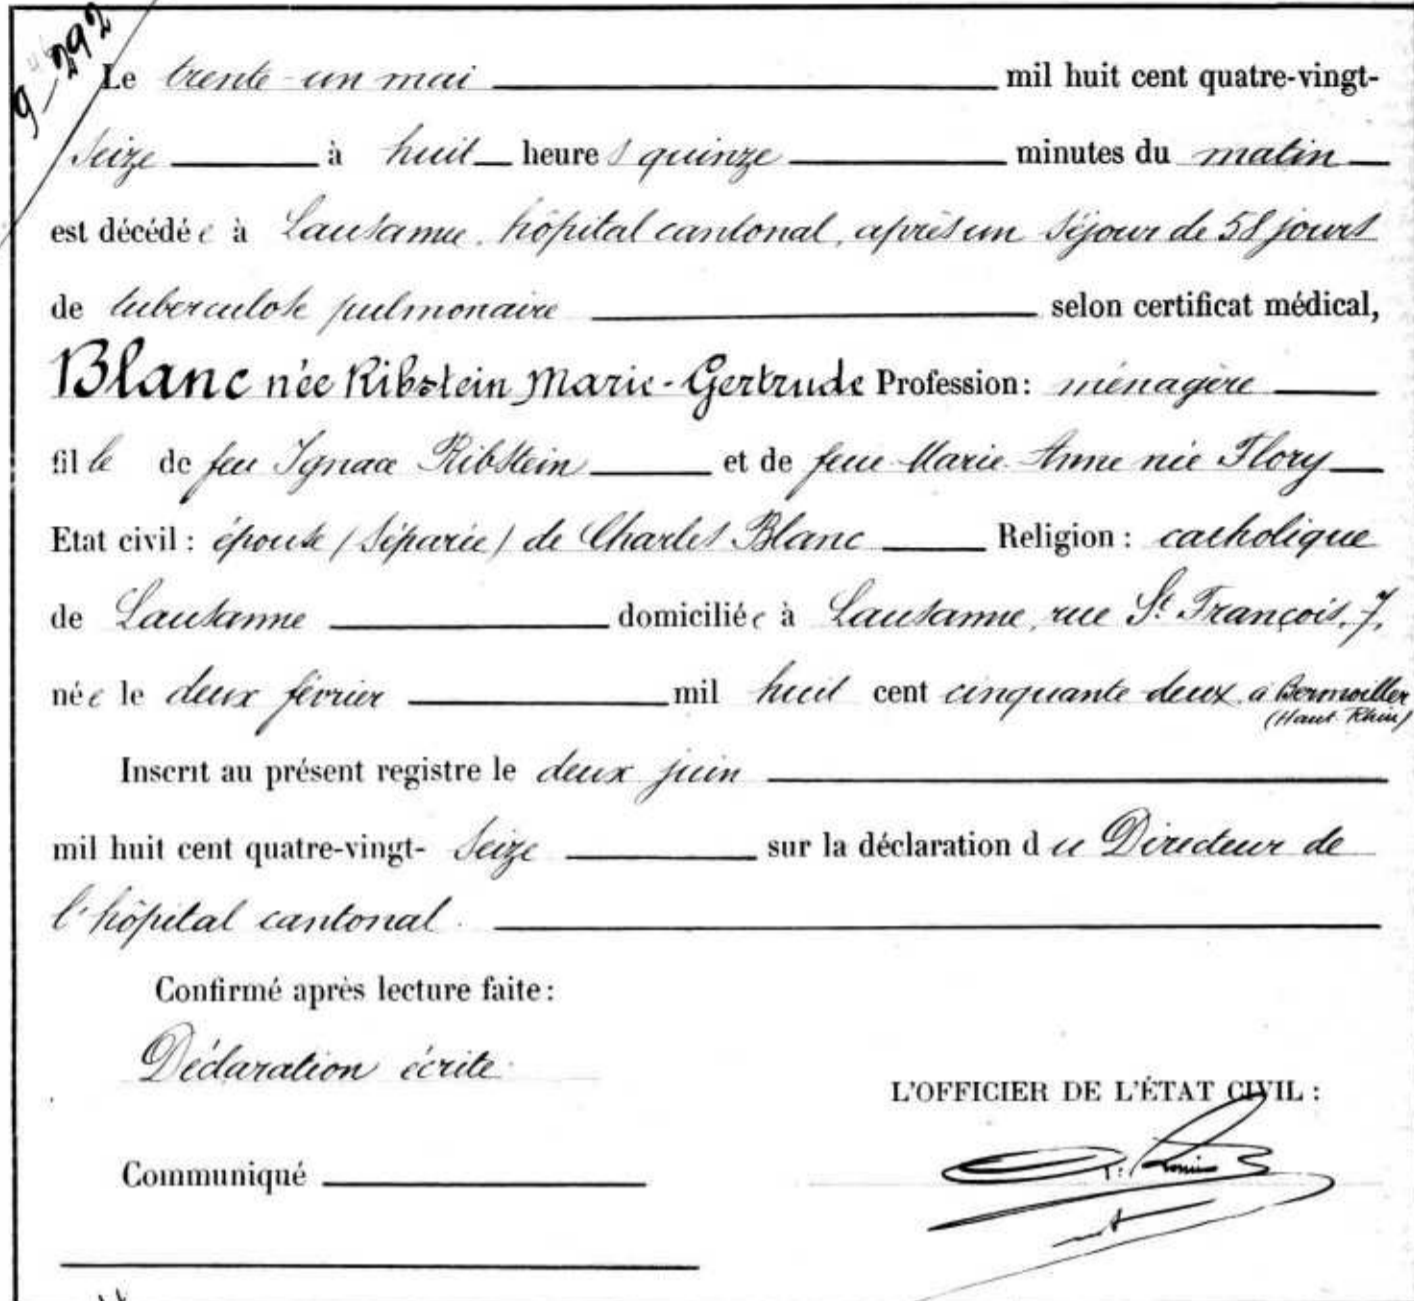 9-292
Le trente-un mai mil huit cent quatre-vingt-
seize à huit heures quinze minutes du matin
est décédée à Lausanne, hôpital cantonal, après un séjour de 58 jours
de tuberculose pulmonaire selon certificat médical,
Blanc née Ribstein Marie-Gertrude Profession: ménagère
fille de feu Ignace Ribstein et de feue Marie-Anne née Flory
Etat civil: épouse (séparée) de Charles Blanc Religion: catholique
de Lausanne domiciliée à Lausanne, rue St. François, 7.
née le deux février mil huit cent cinquante deux à Bernwiller
(Haut-Rhin)
Inscrit au présent registre le deux juin
mil huit cent quatre-vingt- seize sur la déclaration du Directeur de
l'hôpital cantonal.
Confirmé après lecture faite:
Déclaration écrite.
L'OFFICIER DE L'ÉTAT CIVIL:
Communiqué